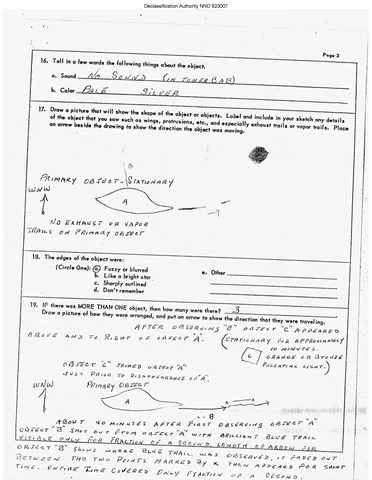 Declassification Authority NND 923007
Page 3
16. Tell in a few words the following things about the object.
a. Sound NO SOUND (IN TOWER CAB)
b. Color PALE SILVER
17. Draw a picture that will show the shape of the object or objects. Label and include in your sketch any details
of the object that you saw such as wings, protrusions, etc., and especially exhaust trails or vapor trails. Place
an arrow beside the drawing to show the direction the object was moving.
PRIMARY OBJECT - STATIONARY
WNW
A
NO EXHAUST OR VAPOR
TRAILS ON PRIMARY OBJECT
18. The edges of the object were:
(Circle One): a. Fuzzy or blurred
b. Like a bright star
c. Sharply outlined
d. Don't remember
e. Other
19. IF there was MORE THAN ONE object, then how many were there? 3
Draw a picture of how they were arranged, and put an arrow to show the direction that they were traveling.
AFTER OBSERVING "B" OBJECT "C" APPEARED
ABOVE AND TO RIGHT OF OBJECT "A".
(STATIONARY FOR APPROXIMATELY
10 MINUTES.
C ORANGE OR BRONZE
PULSATING LIGHT.)
OBJECT "C" JOINED OBJECT "A"
JUST PRIOR TO DISAPPEARANCE OF "A".
WNW
PRIMARY OBJECT
A
x
x
B
ABOUT 40 MINUTES AFTER FIRST OBSERVING OBJECT "A"
OBJECT "B" SHOT OUT FROM OBJECT "A" WITH BRILLIANT BLUE TRAIL
VISIBLE ONLY FOR FRACTION OF A SECOND. LENGTH OF ARROW FOR
OBJECT "B" SHOWS WHERE BLUE TRAIL WAS OBSERVED, IT FADED OUT
BETWEEN THE TWO POINTS MARKED BY X THEN APPEARED FOR SHORT
TIME. ENTIRE TIME COVERED ONLY FRACTION OF A SECOND.